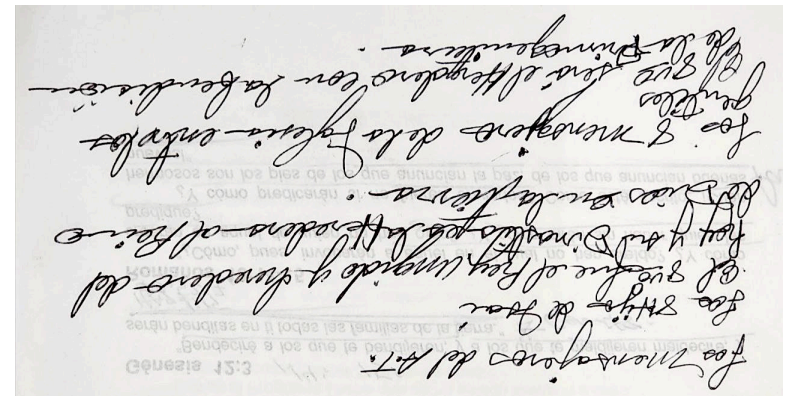 Los mensajeros del A.T.
Los 8 Hijos de Isaí
El 8vo fue el Rey ungido y heredero del
hoy y su Dinastía es la Heredera al Reino
de Dios en la tierra.
Los 8 mensajeros de la Iglesia entre los
gentiles
El 8vo será el Heredero con la bendición
de la Primogenitura.